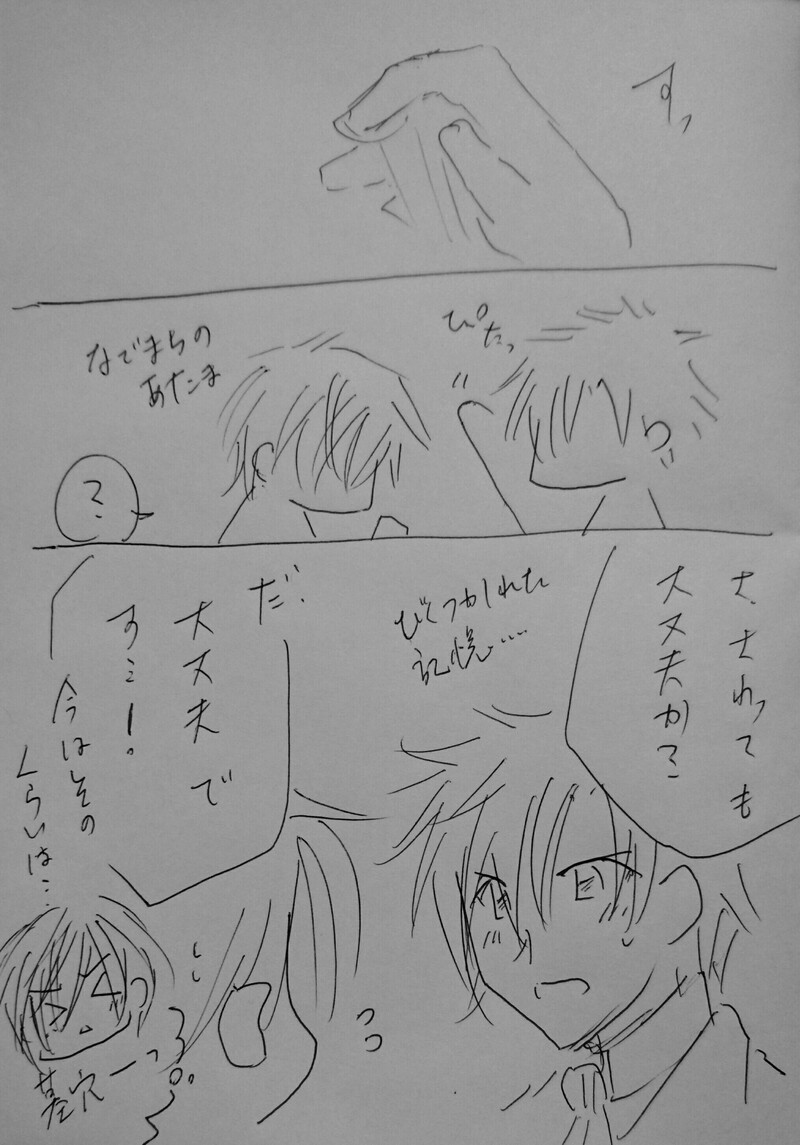 すっ
ぴたっ
なでまちの
あたま
?
さ、さわっても
大丈夫か?
びくつかれた
記憶……
だ、
大丈夫で
今はその
くらいは…
墓穴ーっ